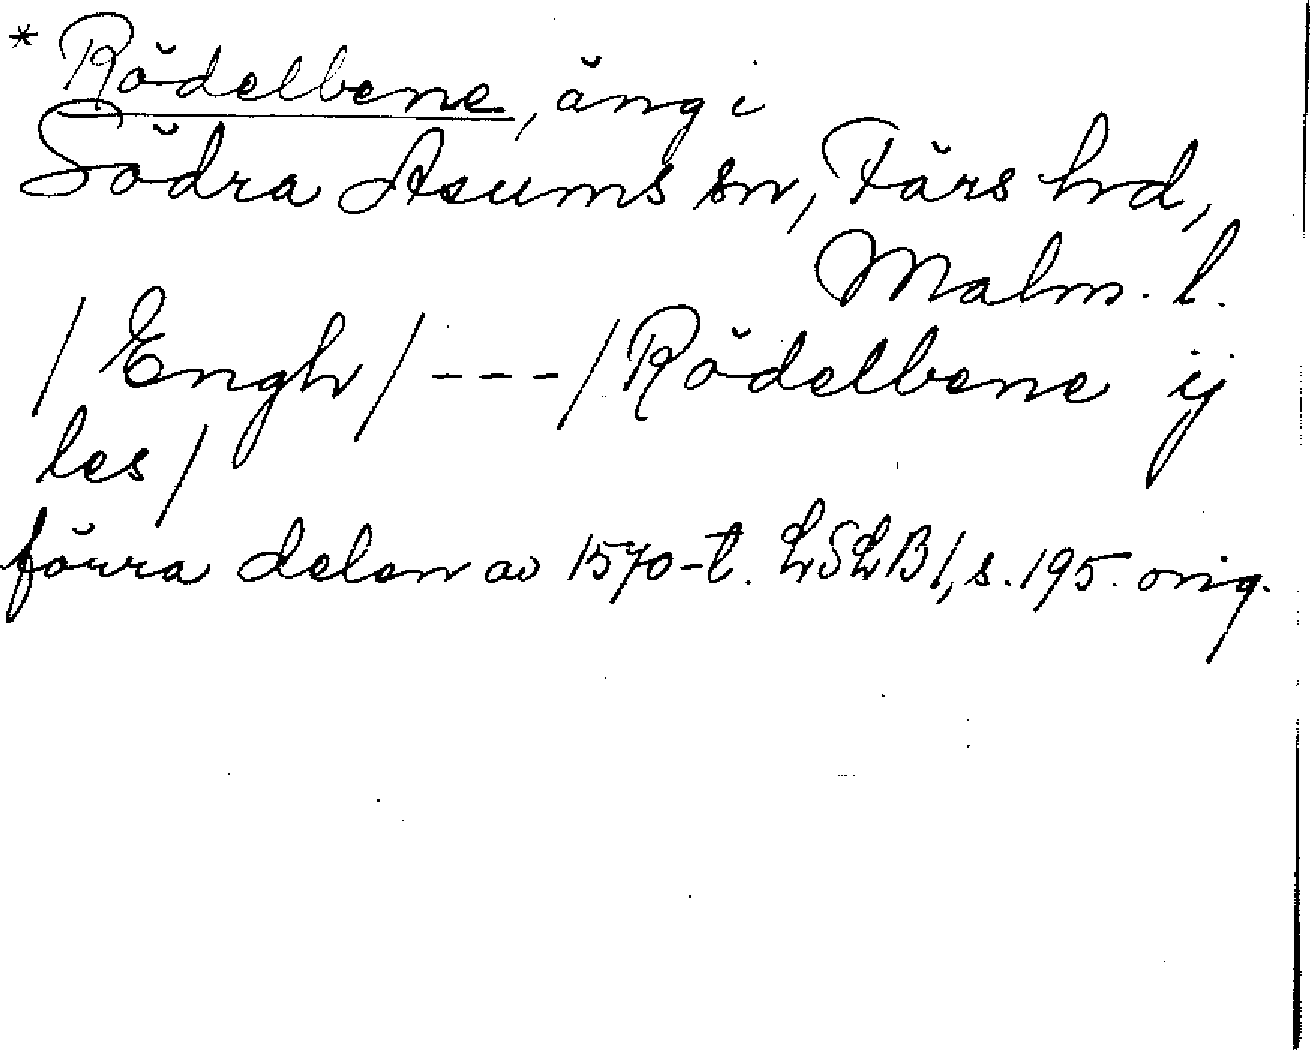 * Rödelbene, äng i
Södra Åsums sn, Färs hd,
Malm. l.
/ Engh / - - - / Rödelbene ij
les /
förra delen av 1570-t. LSLB I, s. 195. orig.